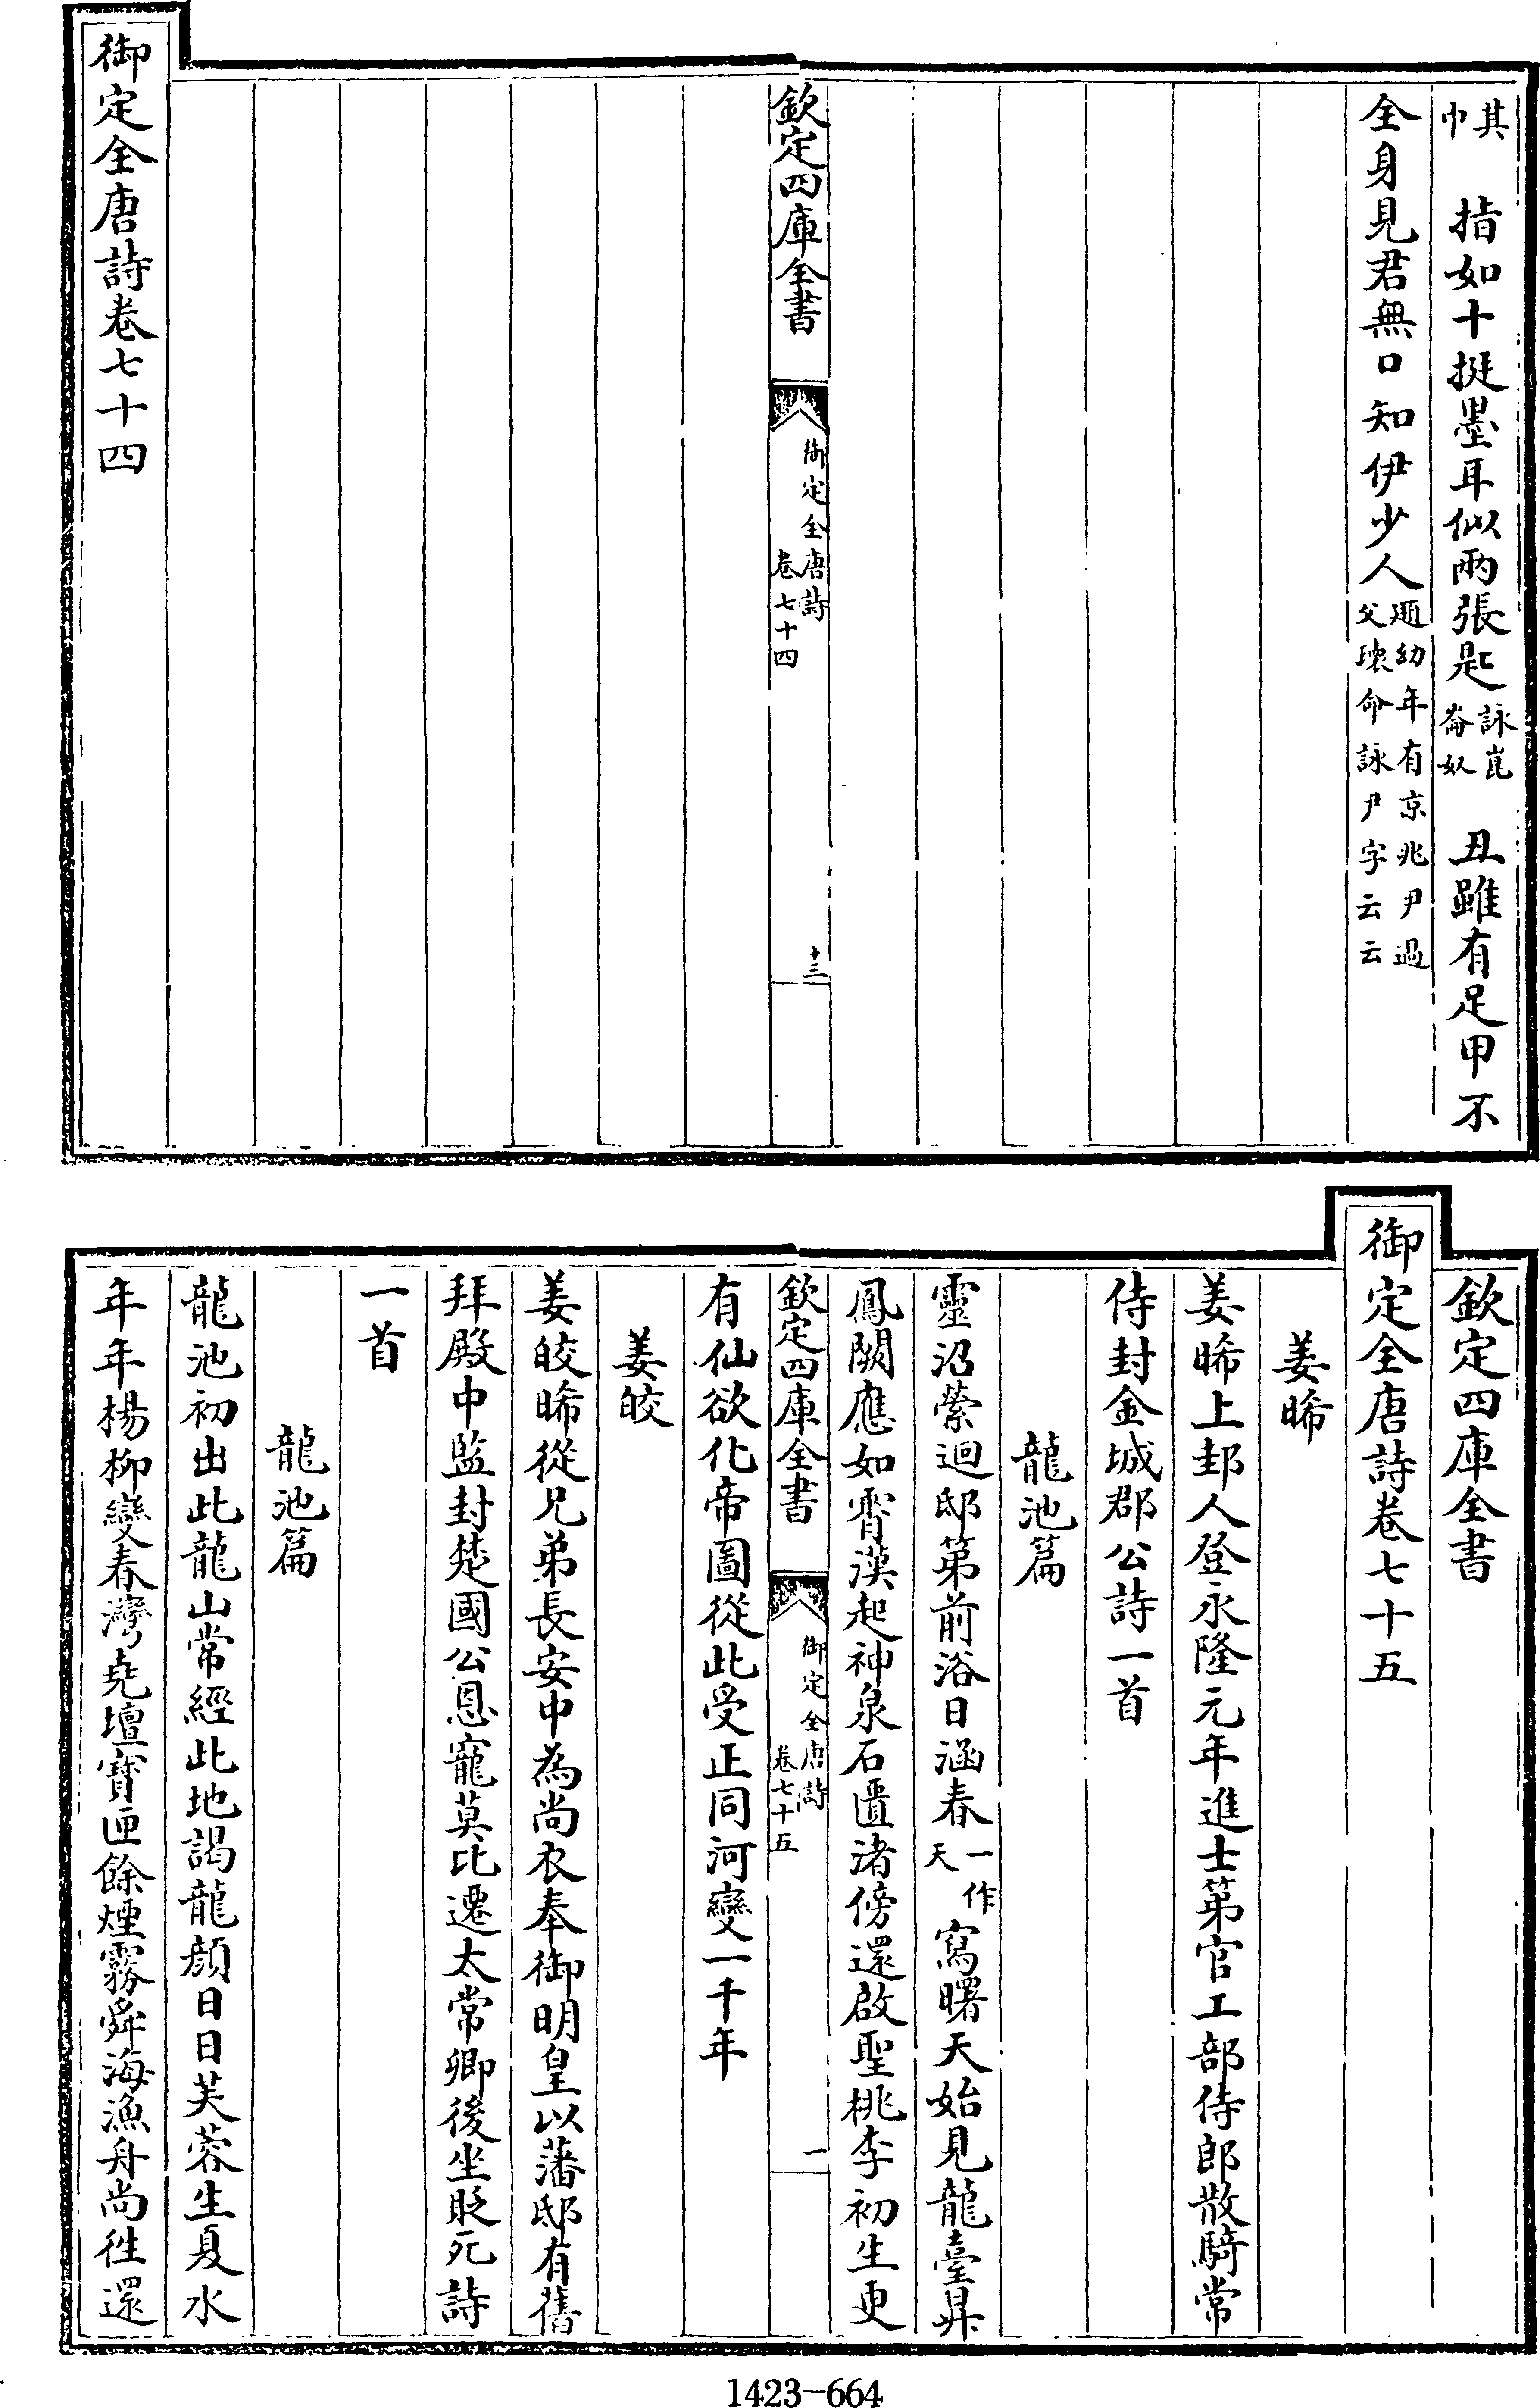 其巾　指如十挺墨耳似兩張匙詠崑崙奴　丑雖有足甲不
全身見君無口知伊少人頲幼年有京兆尹過父瓌命詠尹字云云
欽定四庫全書　御定全唐詩卷七十四　十三
御定全唐詩卷七十四
欽定四庫全書
御定全唐詩卷七十五
姜晞
姜晞上邽人登永隆元年進士第官工部侍郎散騎常
侍封金城郡公詩一首
龍池篇
靈沼縈迴邸第前浴日涵春一作天寫曙天始見龍臺昇
鳳闕應如霄漢起神泉石匱渚傍還啟聖桃李初生更
欽定四庫全書　御定全唐詩卷七十五　一
有仙欲化帝圖從此受正同河變一千年
姜皎
姜皎晞從兄弟長安中為尚衣奉御明皇以藩邸有舊
拜殿中監封楚國公恩寵莫比遷太常卿後坐貶死詩
一首
龍池篇
龍池初出此龍山常經此地謁龍顔日日芙蓉生夏水
年年楊柳變春灣堯壇寶匣餘煙霧舜海漁舟尚徃還
1423-664